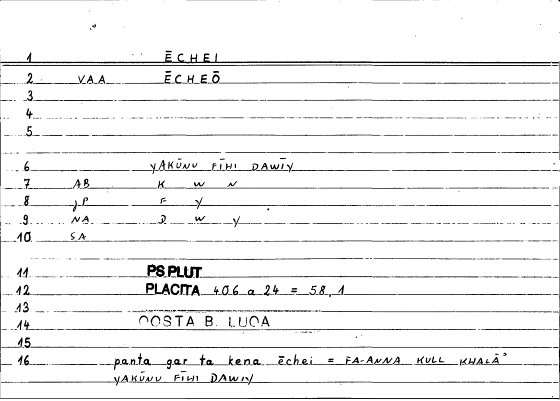 1 ĒCHEI
2 VAA ĒCHEŌ
3
4
5
6 YAKŪNU FĪHI DAWĪY
7 AB K W N
8 JP F Y
9 NA D W Y
10 SA
11 PS PLUT
12 PLACITA 406 a 24 = 58,1
13
14 QOSTA B. LUQA
15
16 panta gar ta kena ēchei = FA-ANNA KULL KHALĀʾ
YAKŪNU FĪHI DAWIY